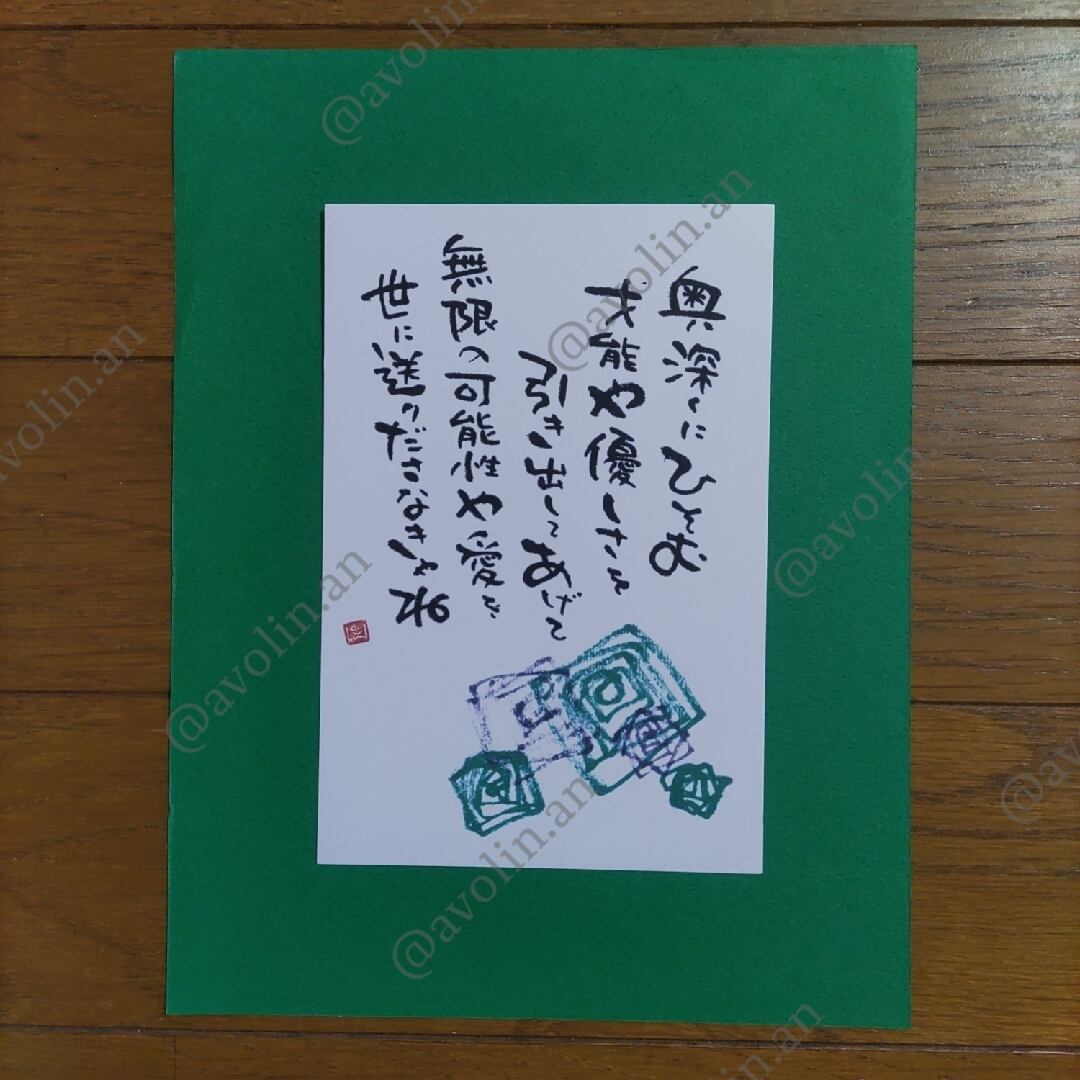 奥深くにひそむ
才能や優しさを
引き出してあげて
無限の可能性や愛を
世に送りださなきゃね
@avolin.an
@avolin.an
@avolin.an
@avolin.an
@avolin.an
@avolin.an
@avolin.an
@avolin.an